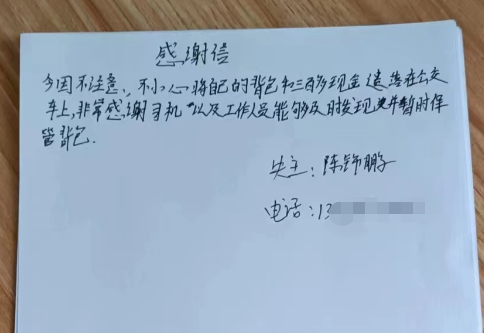 感谢信
今因不注意、不小心将自己的背包和三百多现金遗落在公交
车上,非常感谢司机以及工作人员能够及时发现并暂时保
管背包.
失主:陈锦鹏
电话:13